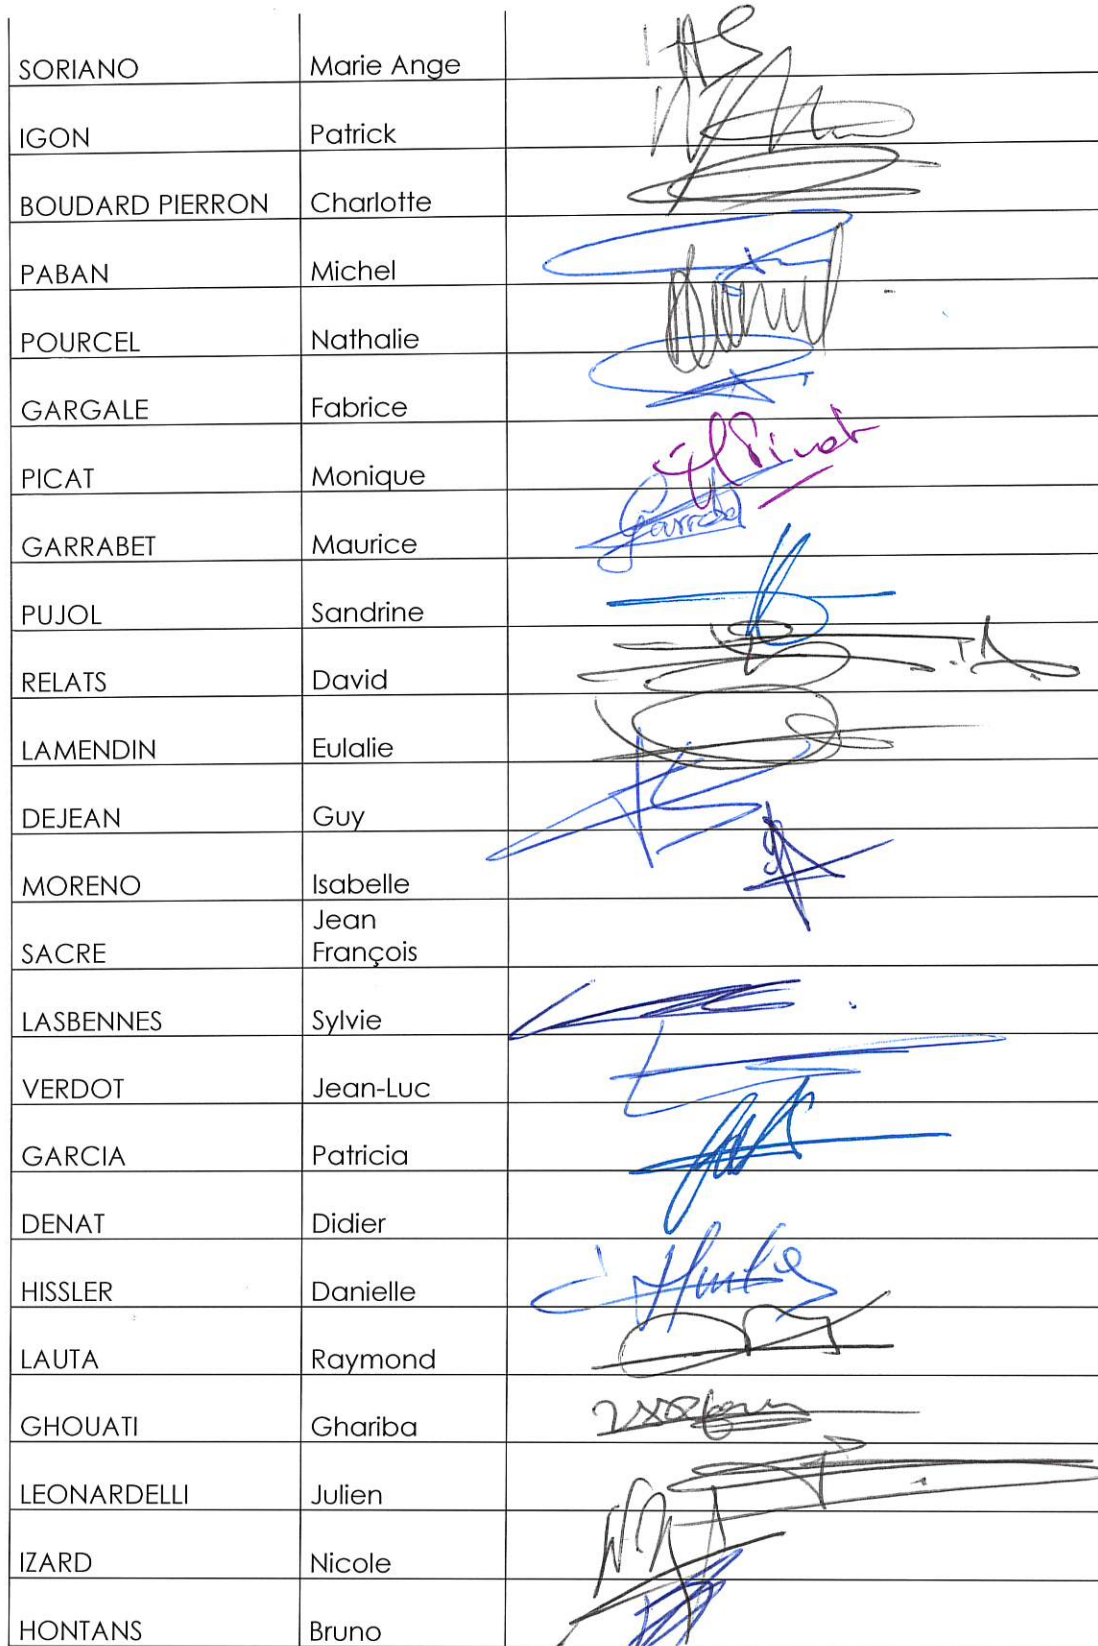 SORIANO Marie Ange
IGON Patrick
BOUDARD PIERRON Charlotte
PABAN Michel
POURCEL Nathalie
GARGALE Fabrice
PICAT Monique
GARRABET Maurice
PUJOL Sandrine
RELATS David
LAMENDIN Eulalie
DEJEAN Guy
MORENO Isabelle
Jean
SACRE François
LASBENNES Sylvie
VERDOT Jean-Luc
GARCIA Patricia
DENAT Didier
HISSLER Danielle
LAUTA Raymond
GHOUATI Ghariba
LEONARDELLI Julien
IZARD Nicole
HONTANS Bruno